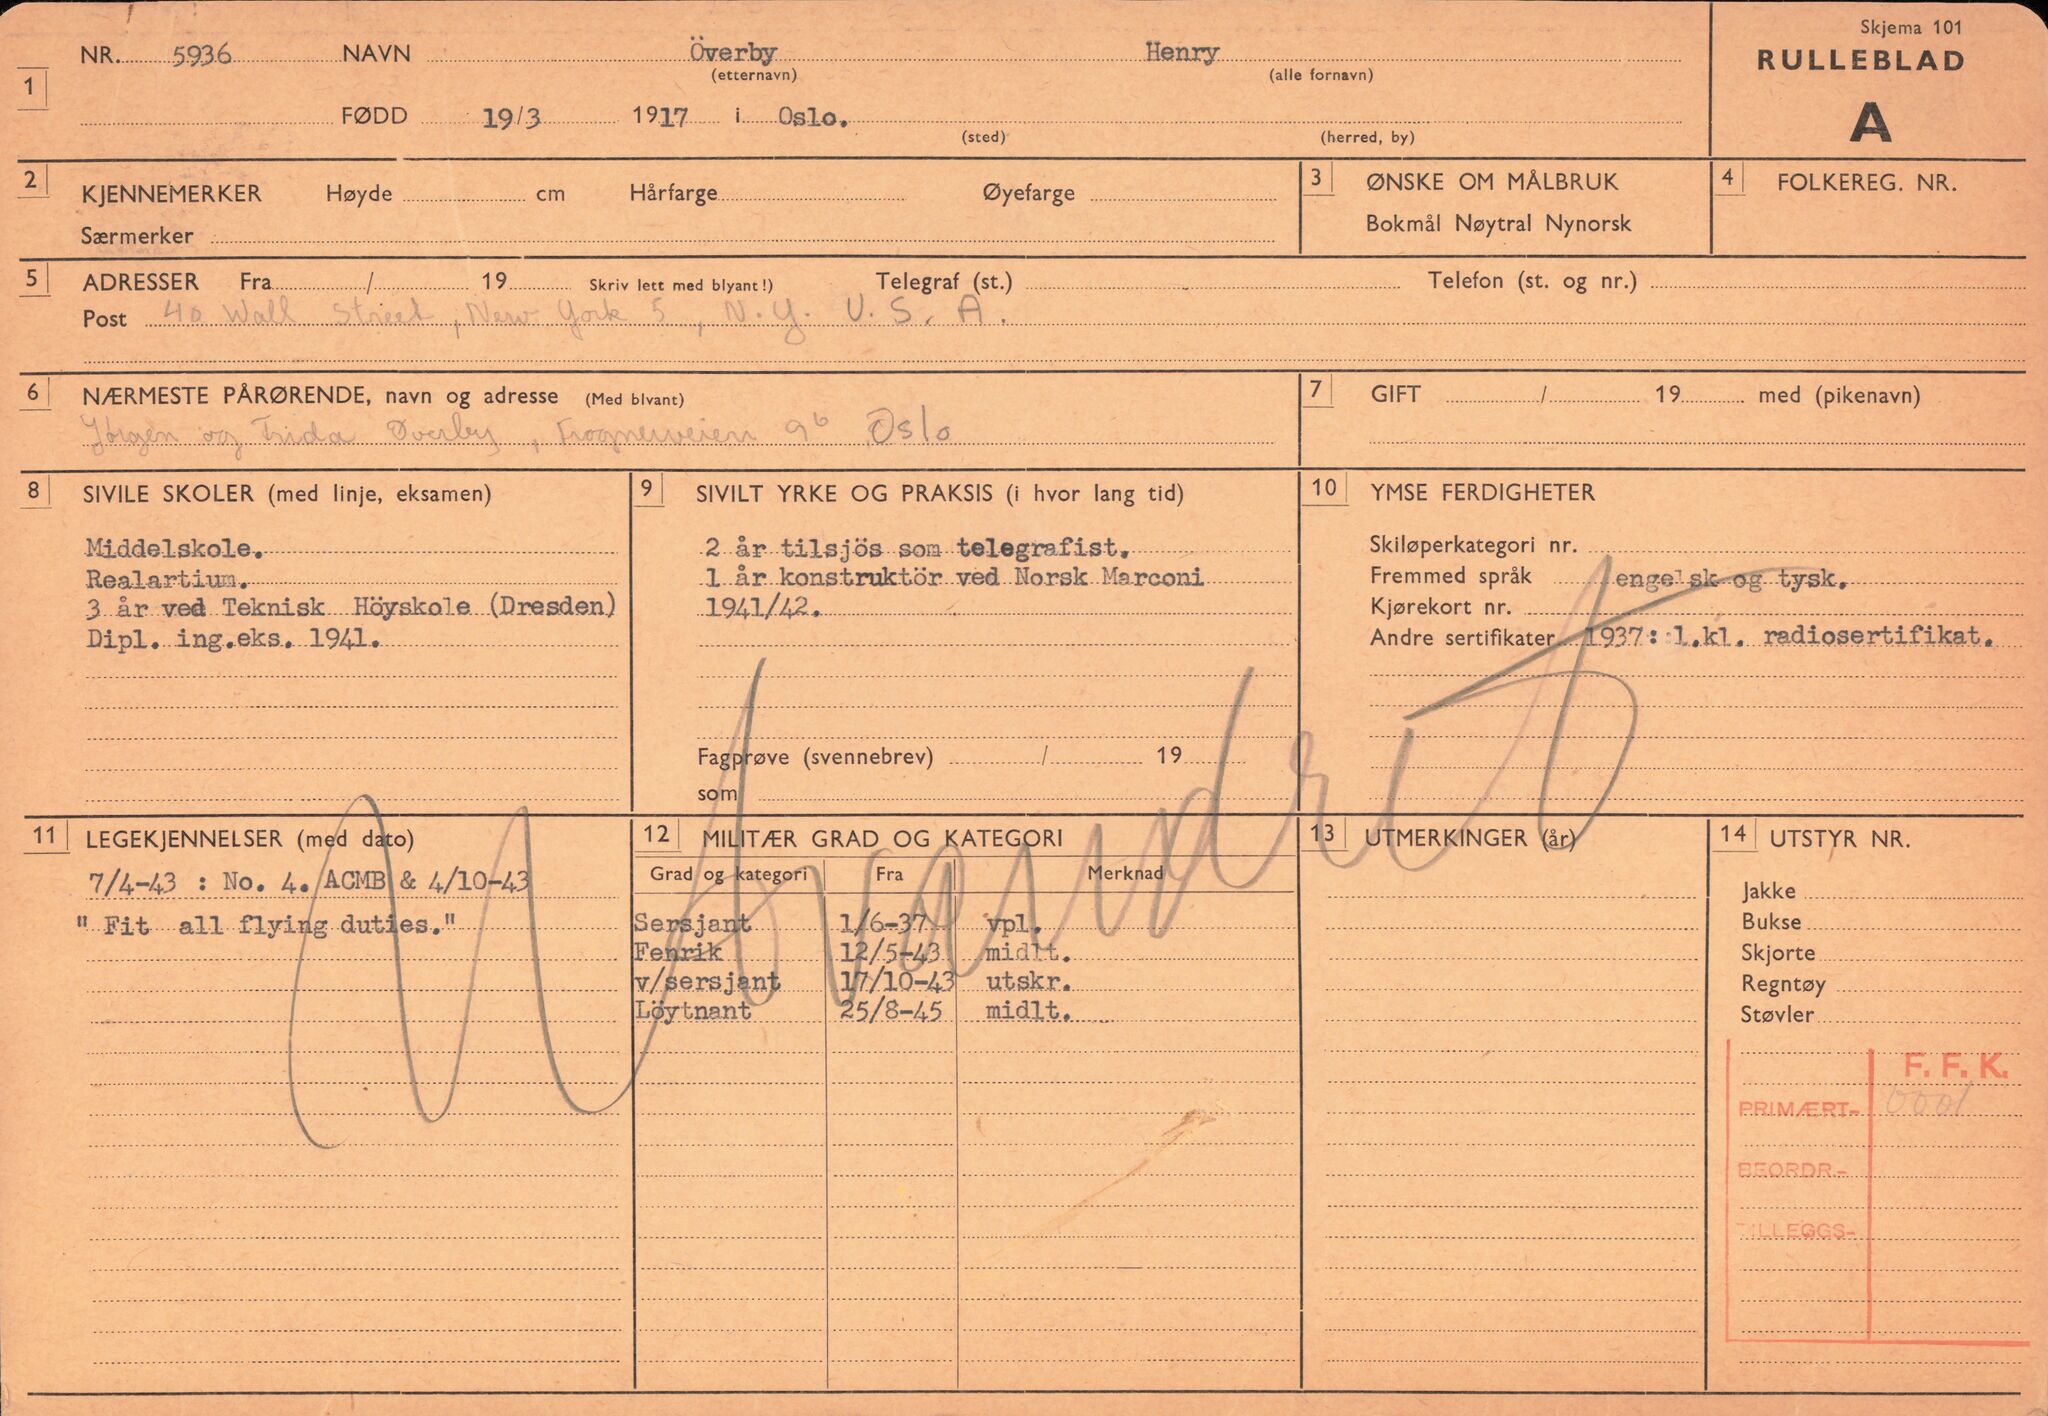 Skjema 101
RULLEBLAD
A
1 NR. 5936 NAVN Överby Henry
(etternavn) (alle fornavn)
FØDD 19/3 1917 i Oslo.
(sted) (herred, by)
2 KJENNEMERKER Høyde cm Hårfarge Øyefarge
Særmerker
3 ØNSKE OM MÅLBRUK
Bokmål Nøytral Nynorsk
4 FOLKEREG. NR.
5 ADRESSER Fra / 19 Skriv lett med blyant!) Telegraf (st.) Telefon (st. og nr.)
Post 40 Wall Street, New York 5, N.Y. U.S.A.
6 NÆRMESTE PÅRØRENDE, navn og adresse (Med blvant)
Jørgen og Frida Øverby, Frognerveien 9b Oslo
7 GIFT / 19 med (pikenavn)
8 SIVILE SKOLER (med linje, eksamen)
Middelskole.
Realartium.
3 år ved Teknisk Höyskole (Dresden)
Dipl. ing.eks. 1941.
9 SIVILT YRKE OG PRAKSIS (i hvor lang tid)
2 år tilsjös som telegrafist.
1 år konstruktör ved Norsk Marconi
1941/42.
Fagprøve (svennebrev) / 19
som
10 YMSE FERDIGHETER
Skiløperkategori nr.
Fremmed språk engelsk og tysk.
Kjørekort nr.
Andre sertifikater 1937: 1.kl. radiosertifikat.
11 LEGEKJENNELSER (med dato)
7/4-43 : No. 4. ACMB & 4/10-43
" Fit all flying duties."
12 MILITÆR GRAD OG KATEGORI
Grad og kategori Fra Merknad
Sersjant 1/6-37 vpl.
Fenrik 12/5-43 midlt.
v/sersjant 17/10-43 utskr.
Löytnant 25/8-45 midlt.
13 UTMERKINGER (år)
14 UTSTYR NR.
Jakke
Bukse
Skjorte
Regntøy
Støvler
F. F. K.
PRIMÆRT- 0001
BEORDR.-
TILLEGGS-